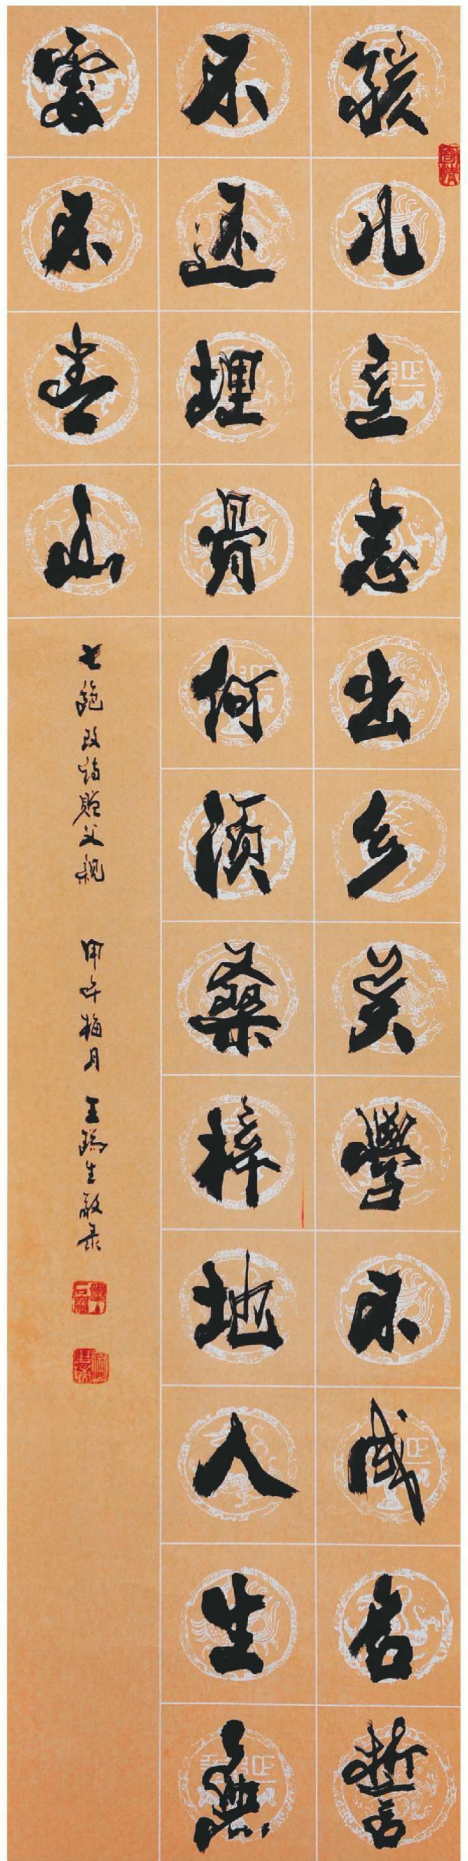 孩儿立志出乡关學不成名誓
不还埋骨何须桑梓地人生無
處不青山
七绝改诗赠父親 甲午梅月 王生敬录